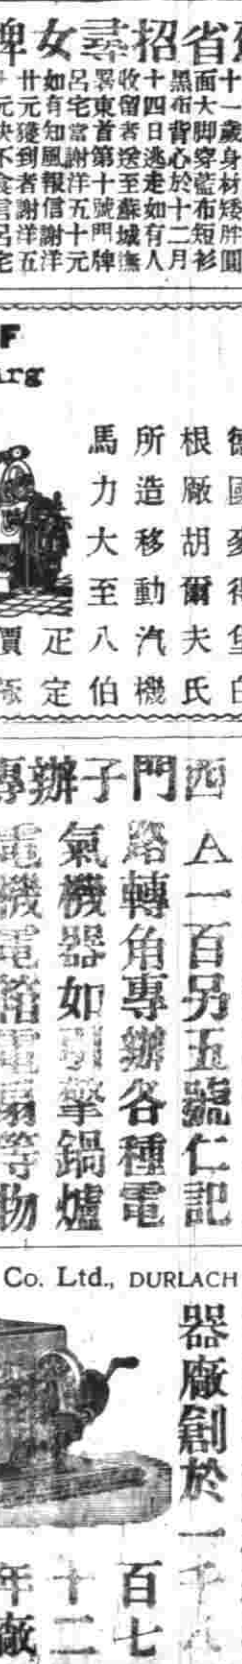 省招尋女婢
十一歲身材矮胖圓
面大脚穿藍布短衫
黑布背心於十二月
十四日逃走如有人
收留者送至蘇城撫
署東首第十號門牌
呂宅當謝洋五十元
如有知風報信謝洋
廿元獲到者謝洋五
十元決不食言呂宅
F
urg
德國麥得堡白
根廠胡爾夫氏
所造移動汽機
馬力大至八伯
疋定
價
西門子辦專
A一百另五號仁記
路轉角專辦各種電
氣機器如引擎鍋爐
電機電燈電扇等物
Co. Ltd., DURLACH
器廠創於一千八
百七
十二
年廠